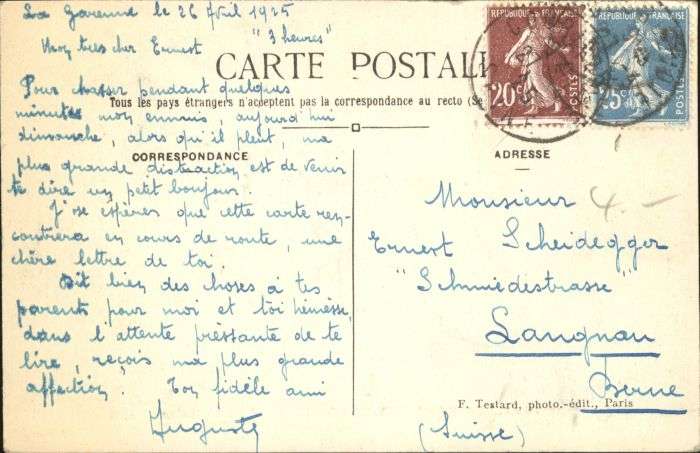 La Garenne le 26 Avril 1925
"3 heures"
Mon très cher Ernest
CARTE POSTALE
Tous les pays étrangers n'acceptent pas la correspondance au recto (Se
CORRESPONDANCE
Pour chasser pendant quelques
minutes mon ennuis, aujourd'hui
dimanche, alors qu'il pleut, ma
plus grande distraction est de venir
te dire un petit bonjour.
J'ose espérer que cette carte ren-
contrera en cours de route, une
chère lettre de toi.
Dit bien des choses à tes
parents pour moi et toi
dans l'attente préssante de te
lire, reçois ma plus grande
affection. Ton fidèle ami
Auguste
REPUBLIQUE FRANÇAISE
20c
POSTES
REPUBLIQUE FRANÇAISE
25c
POSTES
ADRESSE
4.-
Monsieur
Ernest Scheidegger
"Schmiedestrasse"
Langnau
Berne
(Suisse)
F. Testard, photo.-édit., Paris